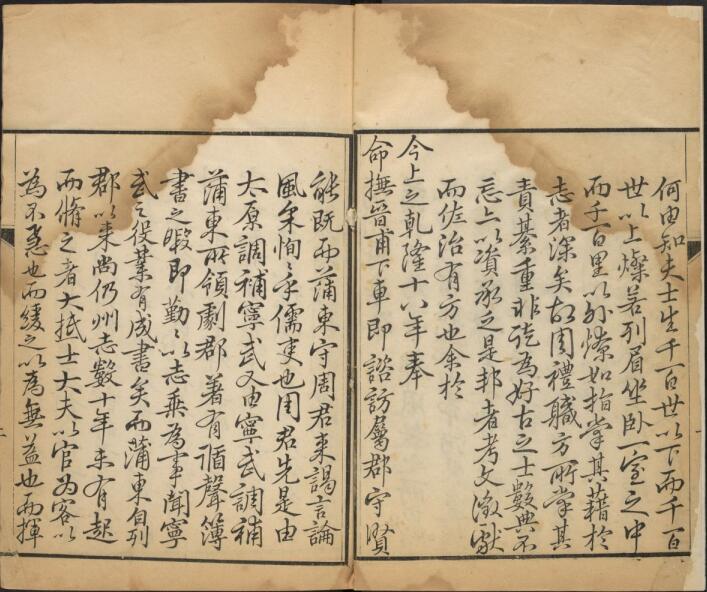 何由知夫士生千百世以下而千百
世以上燦若列眉坐臥一室之中
而千百里以外燎如指掌其藉於
志者深矣故周禮職方所掌其
責綦重非徒為好古之士數典不
忘亦以資承乏是邦者考文徵獻
而佐治有方也余於
今上之乾隆十八年奉
命撫晉甫下車即諮訪屬郡守賢
能既而蒲東守周君来謁言論
風采恂恂乎儒吏也周君先是由
太原調補寧武又由寧武調補
蒲東所領劇郡著有循聲簿
書之暇即勤勤以志乘為事聞寧
武之役業有成書矣而蒲東自列
郡以来尚仍州志數十年未有起
而脩之者大抵士大夫以官為客以
為不急也而緩之以為無益也而揮